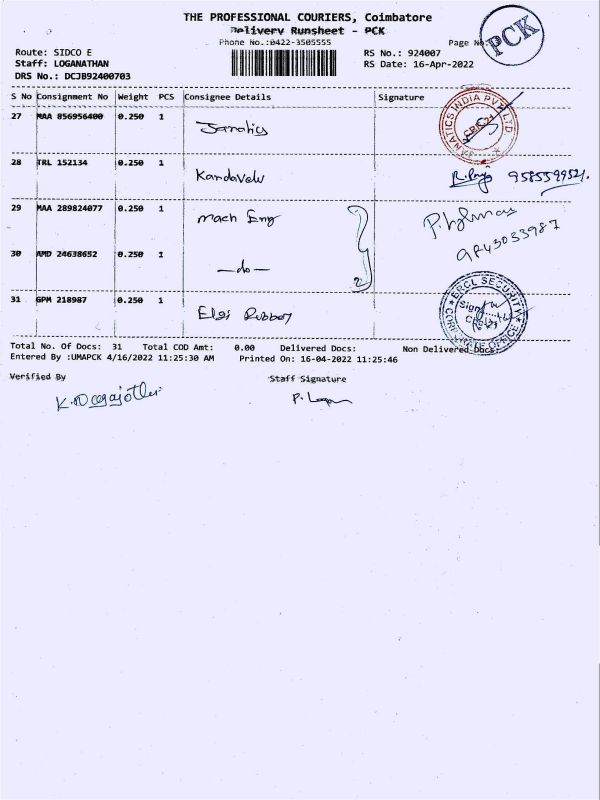 THE PROFESSIONAL COURIERS, Coimbatore
Delivery Runsheet - PCK
Phone No.:0422-3505555
Page No
PCK
Route: SIDCO E
RS No.: 924007
Staff: LOGANATHAN
RS Date: 16-Apr-2022
DRS No.: DCJB92400703
S No Consignment No Weight PCS Consignee Details Signature
27 MAA 856956400 0.250 1 Janatics
28 TRL 152134 0.250 1 Kandavelu
9585599521.
29 MAA 289824077 0.250 1 Mach Eng
9843033987
30 AMD 24638652 0.250 1 —do—
2
31 GPM 218987 0.250 1 Elgi Rubber
ERCL SECURITY
CORPORATE OFFICE
Total No. Of Docs: 31 Total COD Amt: 0.00 Delivered Docs: Non Delivered Docs:
Entered By :UMAPCK 4/16/2022 11:25:30 AM Printed On: 16-04-2022 11:25:46
Verified By Staff Signature